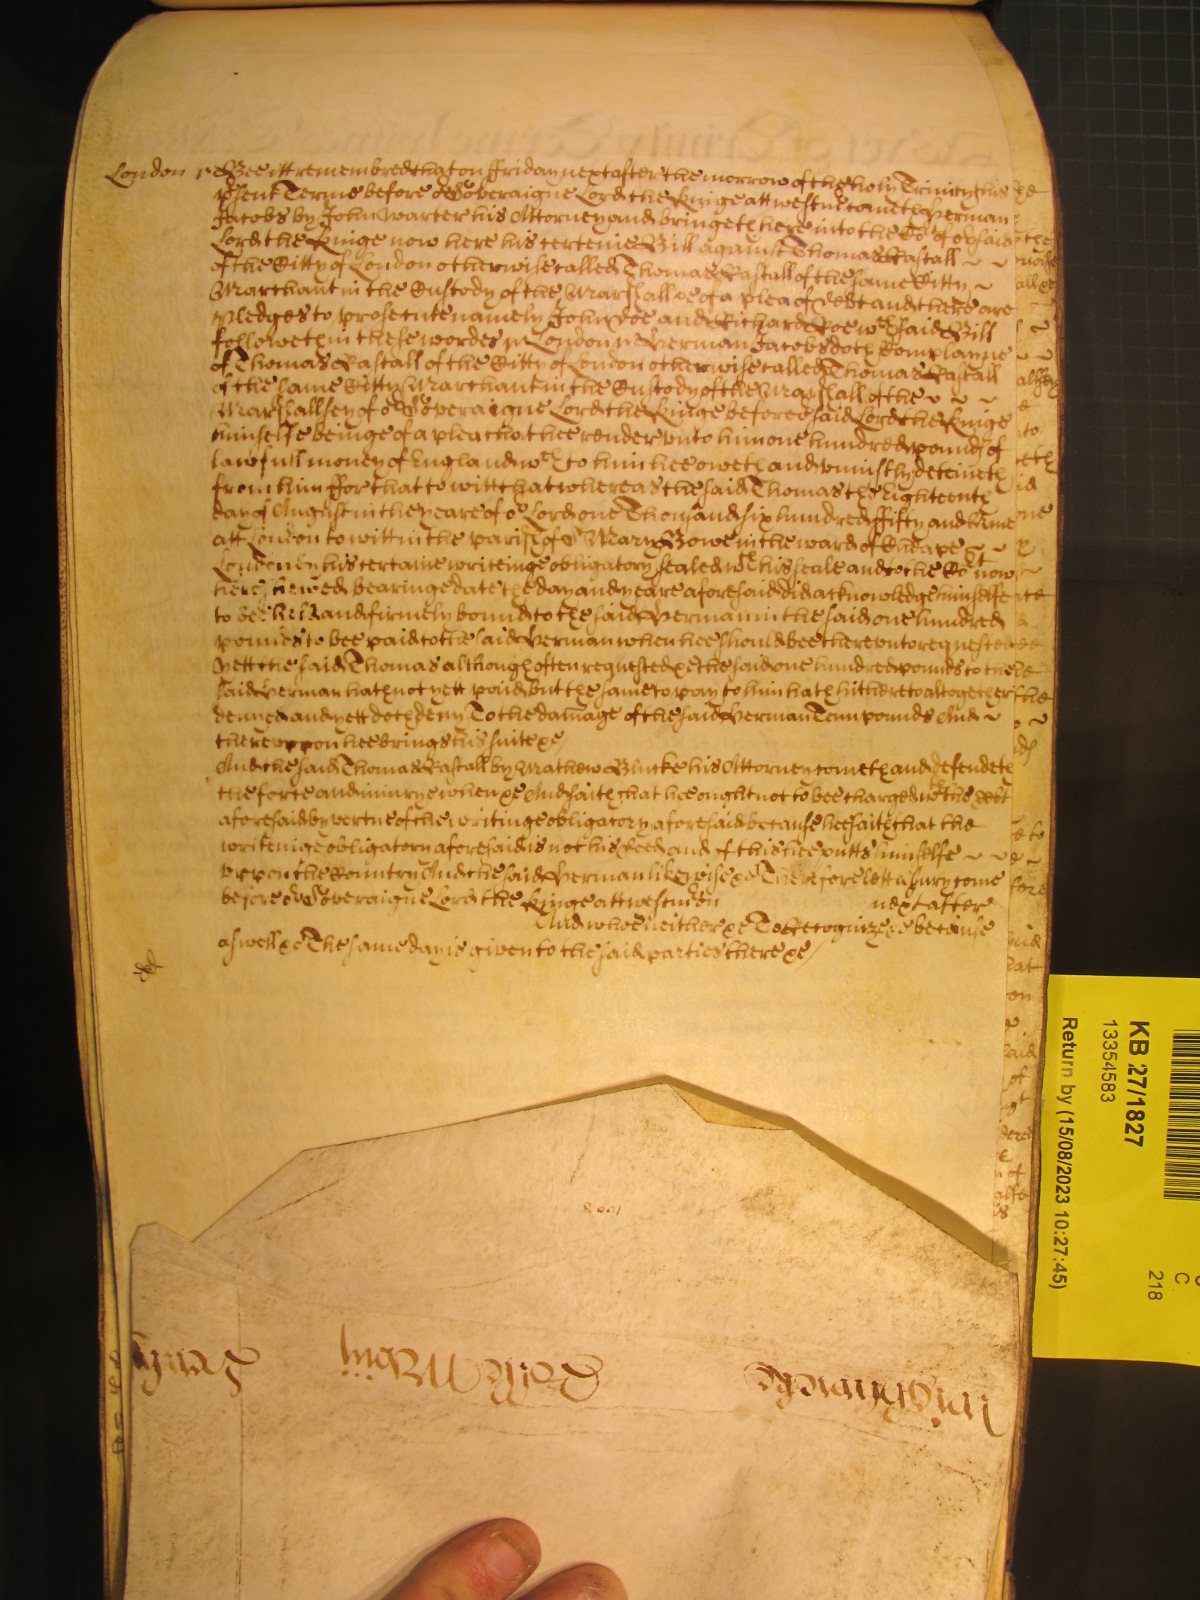 London ss Bee itt remembred that on ffriday next after the morrow of the holy Trinity this
present Terme before or Soveraigne Lord the Kinge att westmr cometh Herman
Jacobs by John Warter his Attorney and bringeth here into the Cort of or said
Lord the Kinge now here his certeine Bill against Thomas Rastall
of the Citty of London otherwise called Thomas Rastall of the same Citty
Marchant in the Custody of the Marshall &c of a plea of debt and there are
pledges to prosecute namely John Doe and Richard Roe wch said Bill
followeth in these wordes ss London ss Herman Jacobs doth Complayne
of Thomas Rastall of the Citty of London otherwise called Thomas Rastall
of the same Citty Marchant in the Custody of the Marshall of the
Marshallsey of or Soveraigne Lord the Kinge before or said Lord the Kinge
himselfe beinge of a plea that hee render unto him one hundred pounds of
lawfull money of England wch to him hee oweth and uniustly deteineth
from him ffor that to witt that whereas the said Thomas the Eighteenth
day of August in the yeare of or Lord one Thousand six hundred ffifty and Nine
att London to witt in the parish of St Mary Bowe in the ward of Cheape
London by his certaine writeinge obligatory sealed wth his seale and to the Cort now
here shewed bearinge date the day and yeare aforesaid did acknowledge himselfe
to bee held and firmely bound to the said Herman in the said one hundred
pounds to bee paid to the said Herman when hee should bee thereunto requested
Yett the said Thomas although often requested &c the said one hundred pounds to the
said Herman hath not yett paid But the same to pay to him hath hitherto altogether
denyed and yett doth deny To the damage of the said Herman Tenn pounds And
thereuppon hee brings his suite &c
And the said Thomas Rastall by Mathew Blucke his Attorney cometh and defendeth
the force and iniurye when &c And saith that hee ought not to bee charged wth the debt
aforesaid by vertue of the writinge obligatory aforesaid because hee saith that the
writeinge obligatory aforesaid is not his deed and of this hee putts himselfe
uppon the Country And the said Herman likewise &c Therefore lett a Jury come
before or Soveraigne Lord the Kinge att westmr on next after
And who neither &c To Recognize &c because
aswell &c The same day is given to the said parties there &c
KB 27/1827
13354583
Return by (15/08/2023 10:27:45)
218
C